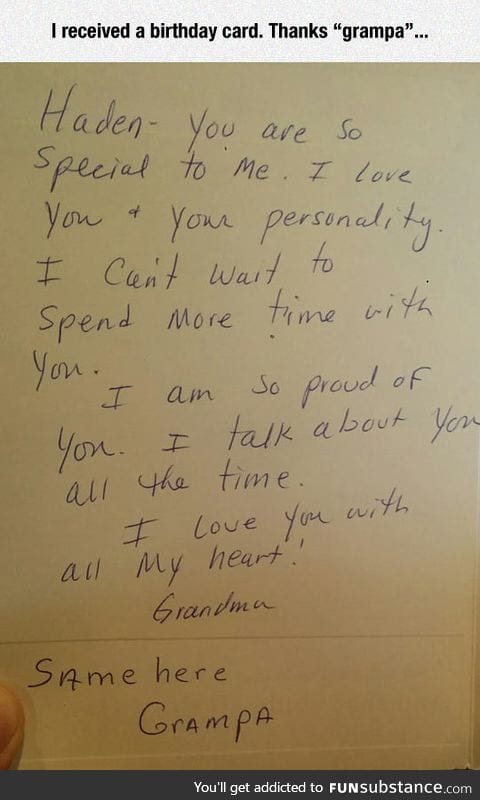 I received a birthday card. Thanks “grampa”...
Haden- You are so
special to me. I love
you + your personality.
I can't wait to
spend more time with
you.
I am so proud of
you. I talk about you
all the time.
I love you with
all my heart!
Grandma
SAme here
GrAmpA
You'll get addicted to FUNsubstance.com